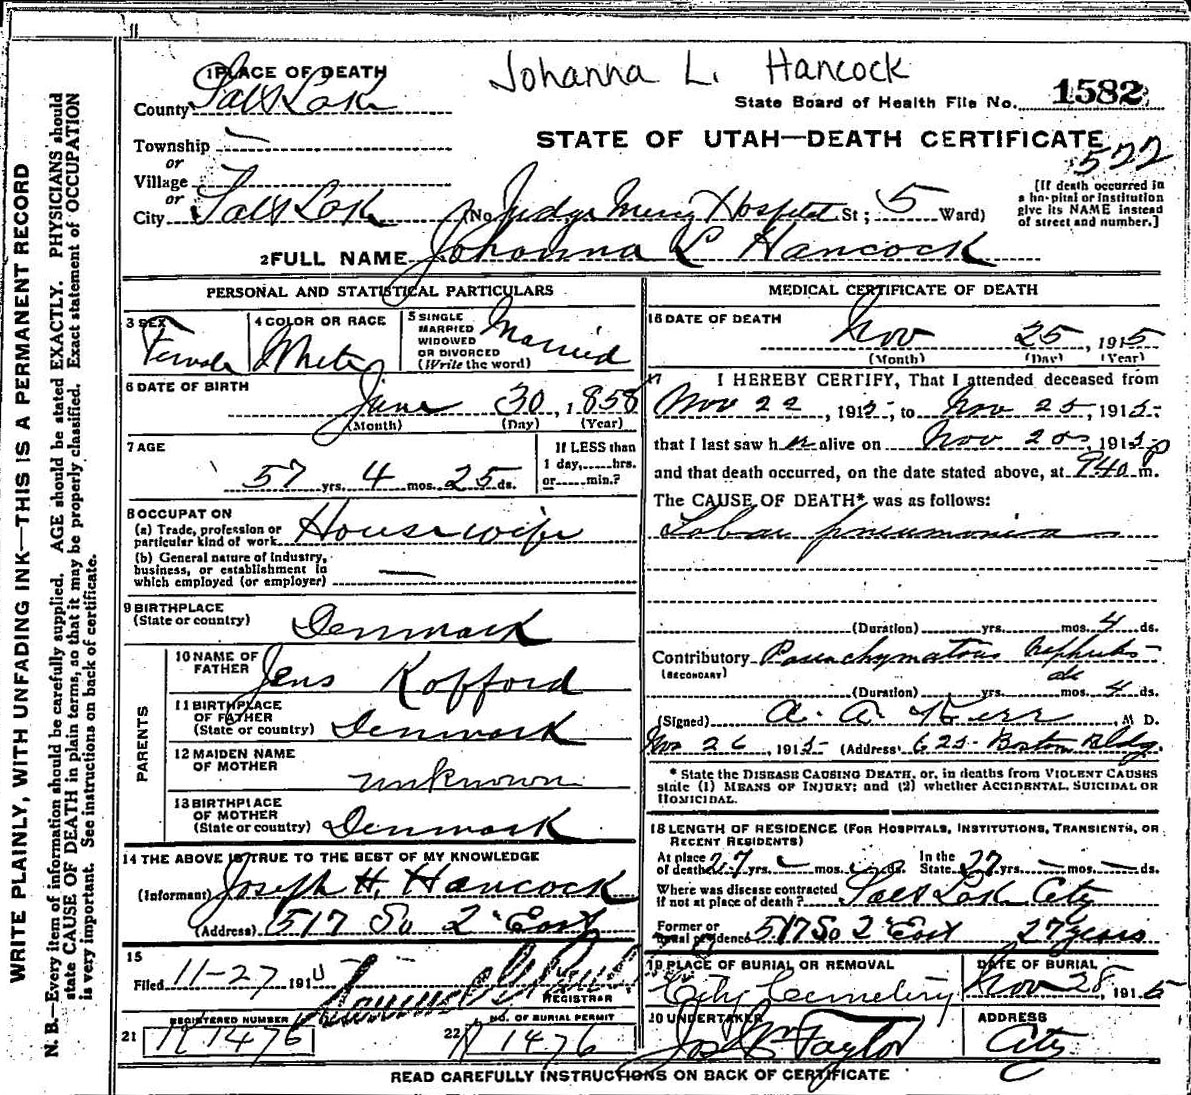 Johanna L. Hancock
1 PLACE OF DEATH
County Salt Lake
State Board of Health File No. 1582
STATE OF UTAH—DEATH CERTIFICATE
522
Township —
or
Village
or
City Salt Lake (No. Judge Mercy Hospital St; 5 Ward)
[If death occurred in
a hospital or institution
give its NAME instead
of street and number.]
2 FULL NAME Johanna L Hancock
PERSONAL AND STATISTICAL PARTICULARS
3 SEX
Female
4 COLOR OR RACE
White
5 SINGLE
MARRIED
WIDOWED
OR DIVORCED
(Write the word)
Married
6 DATE OF BIRTH
June 30, 1858
(Month) (Day) (Year)
7 AGE
57 yrs. 4 mos. 25 ds.
If LESS than
1 day,......hrs.
or......min.?
8 OCCUPATION
(a) Trade, profession or
particular kind of work Housewife
(b) General nature of industry,
business, or establishment in
which employed (or employer) —
9 BIRTHPLACE
(State or country) Denmark
PARENTS
10 NAME OF
FATHER Jens Kofford
11 BIRTHPLACE
OF FATHER
(State or country) Denmark
12 MAIDEN NAME
OF MOTHER unknown
13 BIRTHPLACE
OF MOTHER
(State or country) Denmark
14 THE ABOVE IS TRUE TO THE BEST OF MY KNOWLEDGE
(Informant) Joseph H. Hancock
(Address) 517 So 2 East
15
Filed 11-27 191
REGISTRAR
REGISTERED NUMBER
21 1476
NO. OF BURIAL PERMIT
22 1476
MEDICAL CERTIFICATE OF DEATH
16 DATE OF DEATH
Nov 25, 1915
(Month) (Day) (Year)
17 I HEREBY CERTIFY, That I attended deceased from
Nov 22, 1915, to Nov 25, 1915
that I last saw her alive on Nov 25, 1915
and that death occurred, on the date stated above, at 940 P m.
The CAUSE OF DEATH* was as follows:
Lobar pneumonia
(Duration) yrs. mos. 4 ds.
Contributory Parenchymatous nephritis
(SECONDARY)
(Duration) yrs. mos. 4 ds.
(Signed) A. A. Kerr, M D.
Nov 26, 1915 (Address) 625 Boston Bldg.
* State the DISEASE CAUSING DEATH, or, in deaths from VIOLENT CAUSES
state (1) MEANS OF INJURY; and (2) whether ACCIDENTAL, SUICIDAL OR
HOMICIDAL.
18 LENGTH OF RESIDENCE (FOR HOSPITALS, INSTITUTIONS, TRANSIENTH, OR
RECENT RESIDENTS)
At place
of death 27 yrs. mos. ds.
In the
State 27 yrs. — mos. — ds.
Where was disease contracted
if not at place of death? Salt Lake City
Former or
usual residence 517 So 2 East 27 years
19 PLACE OF BURIAL OR REMOVAL
City Cemetery
DATE OF BURIAL
Nov 28, 1915
20 UNDERTAKER
Jos Wm Taylor
ADDRESS
City
READ CAREFULLY INSTRUCTIONS ON BACK OF CERTIFICATE
WRITE PLAINLY, WITH UNFADING INK—THIS IS A PERMANENT RECORD
N. B.—Every item of information should be carefully supplied. AGE should be stated EXACTLY. PHYSICIANS should
state CAUSE OF DEATH in plain terms, so that it may be properly classified. Exact statement of OCCUPATION
is very important. See instructions on back of certificate.